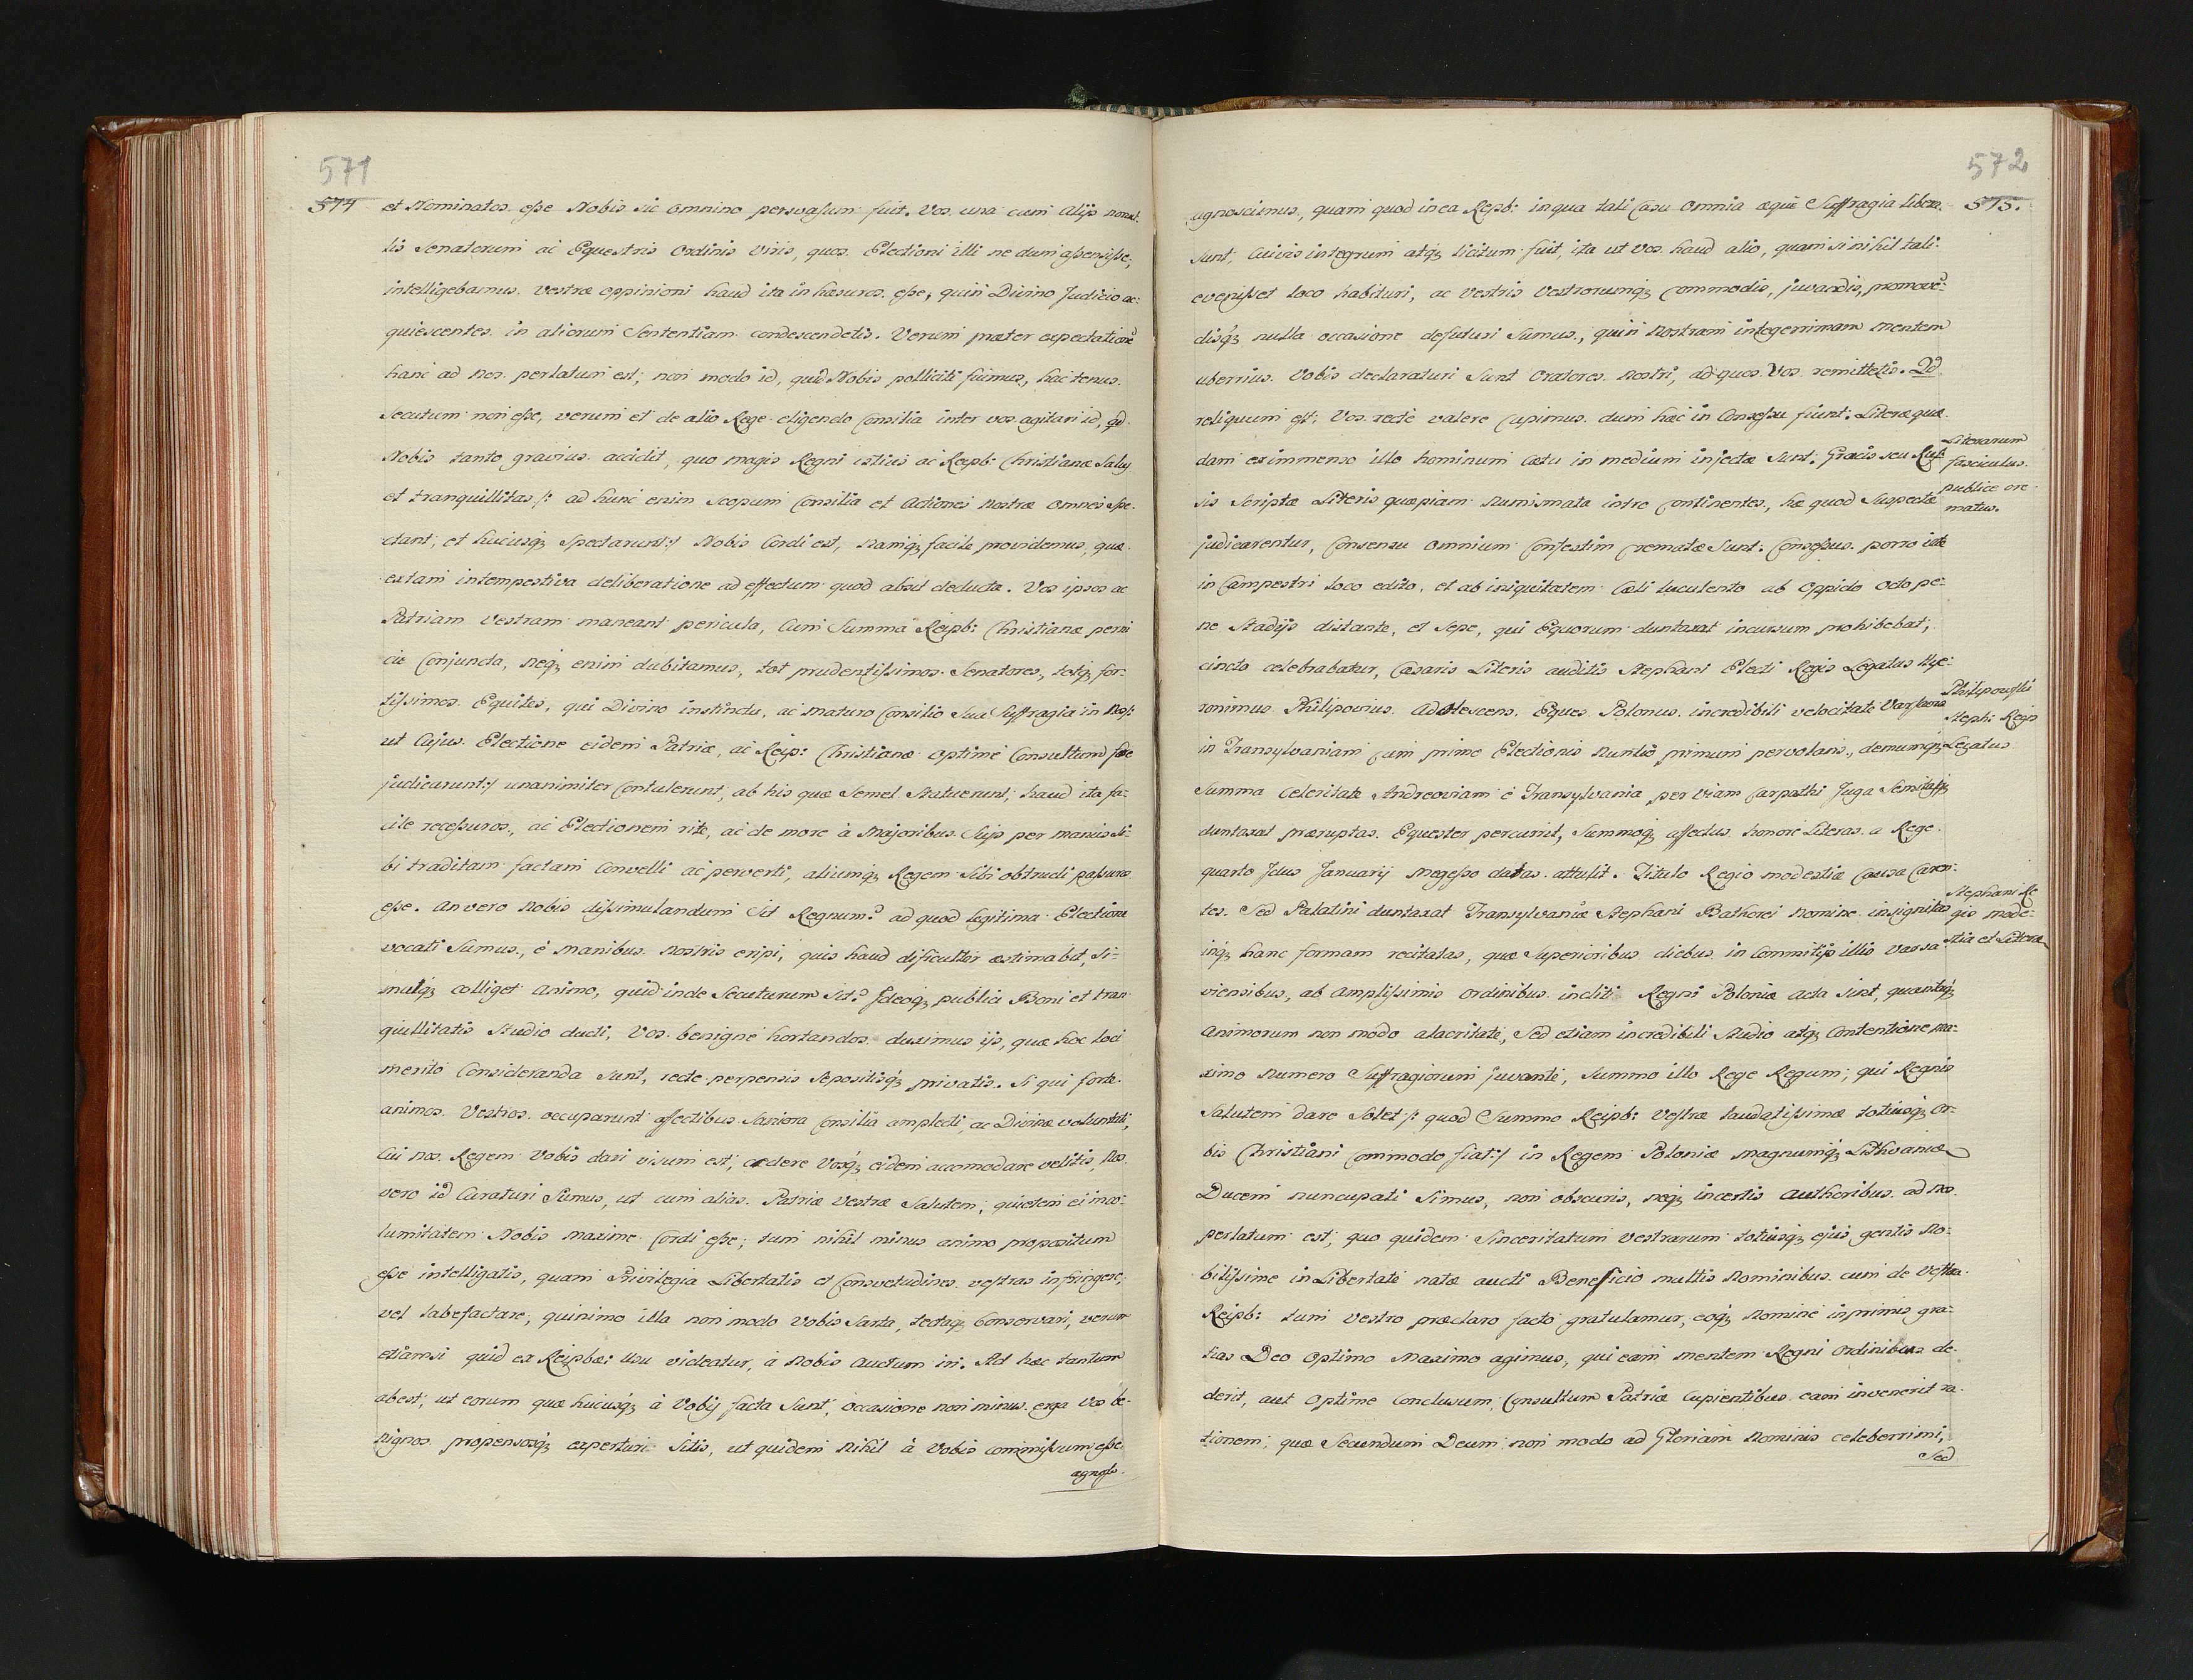 571
574
et Nominatos esse Nobis sic omnino persvasum fuit. Vos una cum Alijs nonul:
lis Senatorum ac Equestris Ordinis Viris, quos Electioni illi ne dum assensisse,
intelligebamus. Vestræ oppinioni haud ita inhæsuros esse, quin Divino Judicio ac:
quiescentes in aliorum Sententiam condescendetis. Verum præter expectationē
hanc ad Nos perlatum est; non modo id, quod Nobis polliciti fuimus, hactenus
Secutum non esse, verum et de alio Rege eligendo Consilia inter vos agitari id, qd
Nobis tanto gravius accidit, quo magis Regni istius ac Reipb: Christianæ Salus
et tranquillitas /: ad hunc enim Scopum Consilia et Actiones Nostræ omnes spe-
ctant, et hucusq; Spectarunt:/ Nobis Cordi est, Namq; facile providemus, quæ
ex tam intempestiva deliberatione ad effectum quod absit deducta. Vos ipsos ac
Patriam Vestram maneant pericula, Cum Summa Reipb: Christianæ perni
cie Conjuncta, Neq; enim dubitamus, tot prudentissimos Senatores, totq; for-
tissimos Equites, qui Divino instinctu, ac maturo Consilio Sua Suffragia in Nos /:
ut Cujus Electione eidem Patriæ, ac Reip: Christianæ optime Consultum fore
judicarunt:/ unanimiter Contulerunt, ab his quæ Semel Statuerunt, haud ita fa-
cile recessuros, ac Electionem rite, ac de more à Majoribus Suis per manus Si-
bi traditam factam Convelli ac perverti, aliumq; Regem Sibi obtrudi passuros
esse. An vero Nobis dissimulandum Sit Regnum? ad quod legitima Electione
vocati Sumus, è manibus Nostris eripi, quis haud dificulter æstimabit, Si-
mulq; colliget animo, quid inde Secuturum Sit? Ideoq; publici Boni et tran
quillitatis Studio ducti, Vos benigne hortandos duximus ijs, quæ hoc loci
merito Consideranda Sunt, recte perpensis Sepositisq; privatis. Si qui forte
animos Vestros occuparunt affectibus Saniora Consilia amplecti, ac Divinæ voluntati,
Cui Nos Regem Vobis dari visum est, cædere Vosq; eidem accomodare velitis, Nos
vero id Curaturi Sumus, ut cum alias Patriæ Vestræ Salutem, quietem et inco:
lumitatem Nobis maxime Cordi esse; tum nihil minus animo propositum
esse intelligatis, quam Privilegia Libertatis et Consvetudines vestras infringere,
vel labefactare, quinimo illa non modo Vobis Sarta, tectaq; Conservari, verum
etiamsi quid ex Reipbæ: Usu videatur, à Nobis Auctum iri. Ad hæc tantum
abest, ut eorum quæ hucusq; à Vobis facta Sunt, occasione non minus erga vos be-
nignos propensosq; experturi Sitis, ut quidem Nihil à Vobis commissum esse
agnos.
572
575.
agnoscimus, quam quod in ea Reipb: in qua tali Casu omnia æque Suffragia libera
Sunt, Cuivis integrum atq; licitum fuit, ita ut Vos haud alio, quam si nihil tali:
evenisset loco habituri, ac Vestris Vestrorumq; Commodis, juvandis, promovē-
disq; nulla occasione defuturi Sumus, quin Nostram integerrimam Mentem
uberrius Vobis declaraturi Sunt Oratores Nostri, ad quos Vos remittetis. Qd
reliquum est: Vos recte valere Cupimus dum hæc in Consessu fiunt: Literæ quæ
dam ex immenso illo hominum Cœtu in medium injectæ Sunt; Græcis seu Rus
Literarum
fasciculus
publice cre
matus.
sis Scriptæ Literis quæpiam Numismata intro Continentes, hæ quod Suspectæ
judicarentur, Consensu omnium Confestim Crematæ Sunt: Consessus porro iste
in Campestri loco edito, et ab iniquitatem Cæli luculento ab Oppido octo pe-
ne Stadijs distante, et Sepe, qui Equorum duntaxat incursum prohibebat;
cincto celebrabatur, Cæsaris Literis auditis Stephani Electi Regis Legatus Hye:
ronimus Philipovius Adolescens Eques Polonus incredibili velocitate Varsavia
Philipowski
Steph: Regis
Legatus
in Transylvaniam Cum primo Electionis Nuntio primum pervolans, demumq;
Summa Celeritate Andreoviam è Transylvania per Viam Carpathi Juga Semitasq;
duntaxat præruptas Equester percurrit, Summoq; affectus honore Literas a Rege
quarto Idus Januarij Megesso datas attulit. Titulo Regio modestiæ Causa Caren:
tes. Sed Palatini duntaxat Transylvaniæ Stephani Bathorei Nomine insignitas
Stephani Re
gis mode:
stia et Literæ
inq; hanc formam recitatas, quæ Superioribus diebus in Commitijs illis Varsa
viensibus, ab amplissimis Ordinibus incliti Regni Poloniæ Acta Sint, quantaq;
Animorum non modo alacritate, Sed etiam incredibili Studio atq; Contentione ma-
ximo Numero Suffragiorum juvante, Summo illo Rege Regum; qui Regnis
Salutem dare Solet /: quod Summo Reipb: Vestræ laudatissimæ totiusq; Or-
bis Christiani Commodo fiat:/ in Regem Poloniæ Magnumq; Lithvaniæ
Ducem nuncupati Simus, non obscuris, neq; incertis Authoribus ad Nos
perlatum est; quo quidem Sinceritatum Vestrarum totiusq; ejus gentis No-
bilissime in Libertate natæ aucti Beneficio multis Nominibus cum de Vestra
Reipb: tum Vestro præclaro facto gratulamur, eoq; Nomine inprimis gra-
tias Deo Optimo Maximo agimus, qui eam mentem Regni Ordinibus de-
derit, aut Optime Conclusum, Consultum Patriæ Cupientibus eam invenerit ra-
tionem, quæ Secundum Deum non modo ad Gloriam Nominis celeberrimi,
Sed